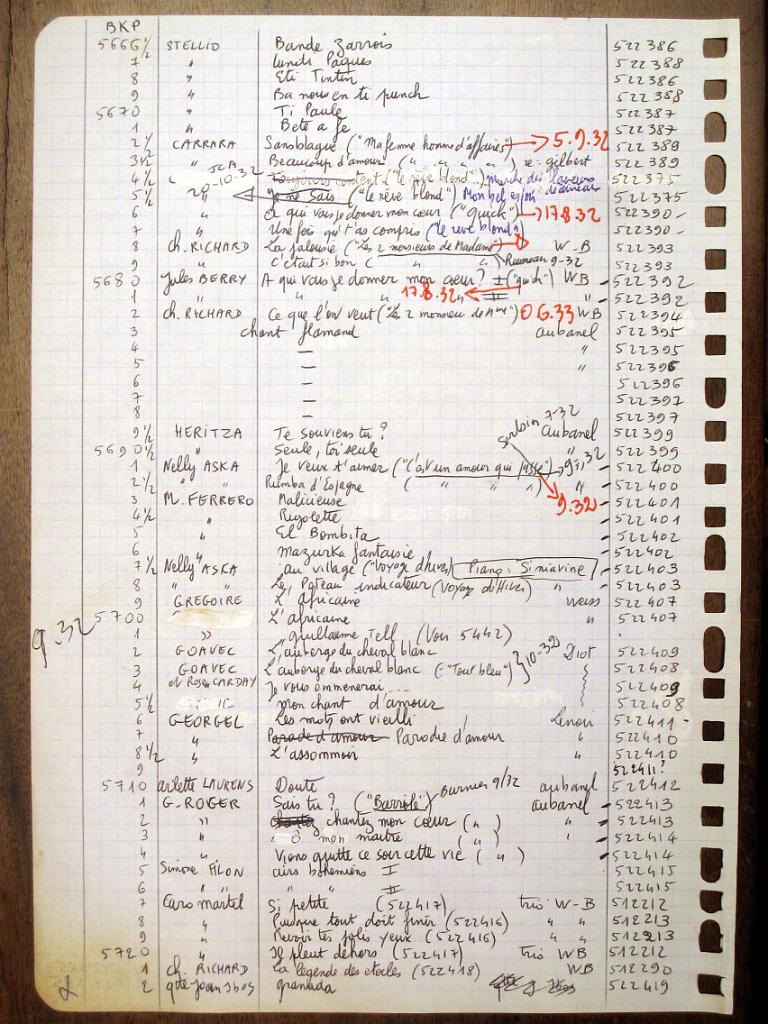 BKP
5666 1/2 STELLIO Bande Zarrois 522 386
7 " Lundi Pâques 522 388
8 " Eti Tintin 522 386
9 " Ba nous en ti punch 522 388
5670 " Ti Paule 522 387
1 " Bete a fe 522 387
2 1/2 CARRARA Sansblague ("Ma femme homme d'affaires") → 5.9.32 522 389
3 1/2 " Beaucoup d'amour ( " " " ) re-gilbert 522 389
4 1/2 Toujours content ("le rêve blond") marche des laveurs 522 375
5 1/2 20-10-32 " Je ne sais ("le rêve blond") 522 375
6 " A qui vais je donner mon cœur ("quick") → 17.8.32 522 390 -
7 " Une fois qu't'as compris (le reve blond) 522 390 -
8 ch. RICHARD La jalousie ("Les 2 monsieurs de Madame") W-B 522 393
9 " C'était si bon ( " " ) Rumeau 9-32 522 393
5680 Jules BERRY A qui vais je donner mon cœur? I ("quick") WB 522 392
1 " " 17.8.32 " II " 522 392
2 ch. RICHARD Ce que l'on veut ("Les 2 monsieur de Mme") 06.33 WB 522 394
3 chant flamand aubanel 522 395
4 — " 522 395
5 — " 522 396
6 — 522 396
7 — 522 397
8 — 522 397
9 1/2 HERITZA Te souviens tu? 7-32 aubanel 522 399
5690 1/2 " Seule, toi seule " 522 399
1 Nelly ASKA Je veux t'aimer ("c'est un amour qui passe") 9.32 522 400
2 1/2 " Rumba d'Espagne ( " " " ) " 522 400
3 M. FERRERO Malicieuse 9.32 522 401
4 1/2 " Rigolette 522 401
5 " El Bombita 522 402
6 " mazurka fantaisie 522 402
7 1/2 Nelly ASKA au village ("Voyage d'hiver) Piano: Siniavine 522 403
8 " " Le Poteau indicateur (Voyage d'Hiver) " 522 403
9 GREGOIRE L'africaine Weiss 522 407
9.32 5700 L'africaine " 522 407
1 " guillaume Tell (Voir 5442)
2 GOAVEC L'auberge du cheval blanc Diot 522409
3 GOAVEC L'auberge du cheval blanc (="Tout bleu") } 10-32 522408
4 et Rose CARDAY Je vous emmenerai... 522409
5 1/2 " mon chant d'amour 522408
6 GEORGEL Les mots ont vieilli Lenoir 522411
7 " Parade d'amour Parodie d'amour " 522410
8 1/2 " L'assommoir " 522410
9 522411?
5710 arlette LAURENS Doute aubanel 522412
1 G. ROGER Sais tu? ("Barrolé") 9/32 aubanel 522413
2 " chantez mon cœur ( " ) " 522413
3 " ô mon maitre ( " ) ' 522414
4 " Viens quitte ce sour cette vie ( " ) 522414
5 Simone FILON airs bohemiens I 522415
6 " " " " II 522415
7 Caro martel Si petite (522417) trio W-B 512212
8 " Puisque tout doit finir (522416) " " 512213
9 " Revoir tes jolis yeux (522416) " " 512213
5720 " Il pleut dehors (522417) Trio WB 512212
1 ch. RICHARD La legende des etoiles (522418) WB 512290
2 granada 522419